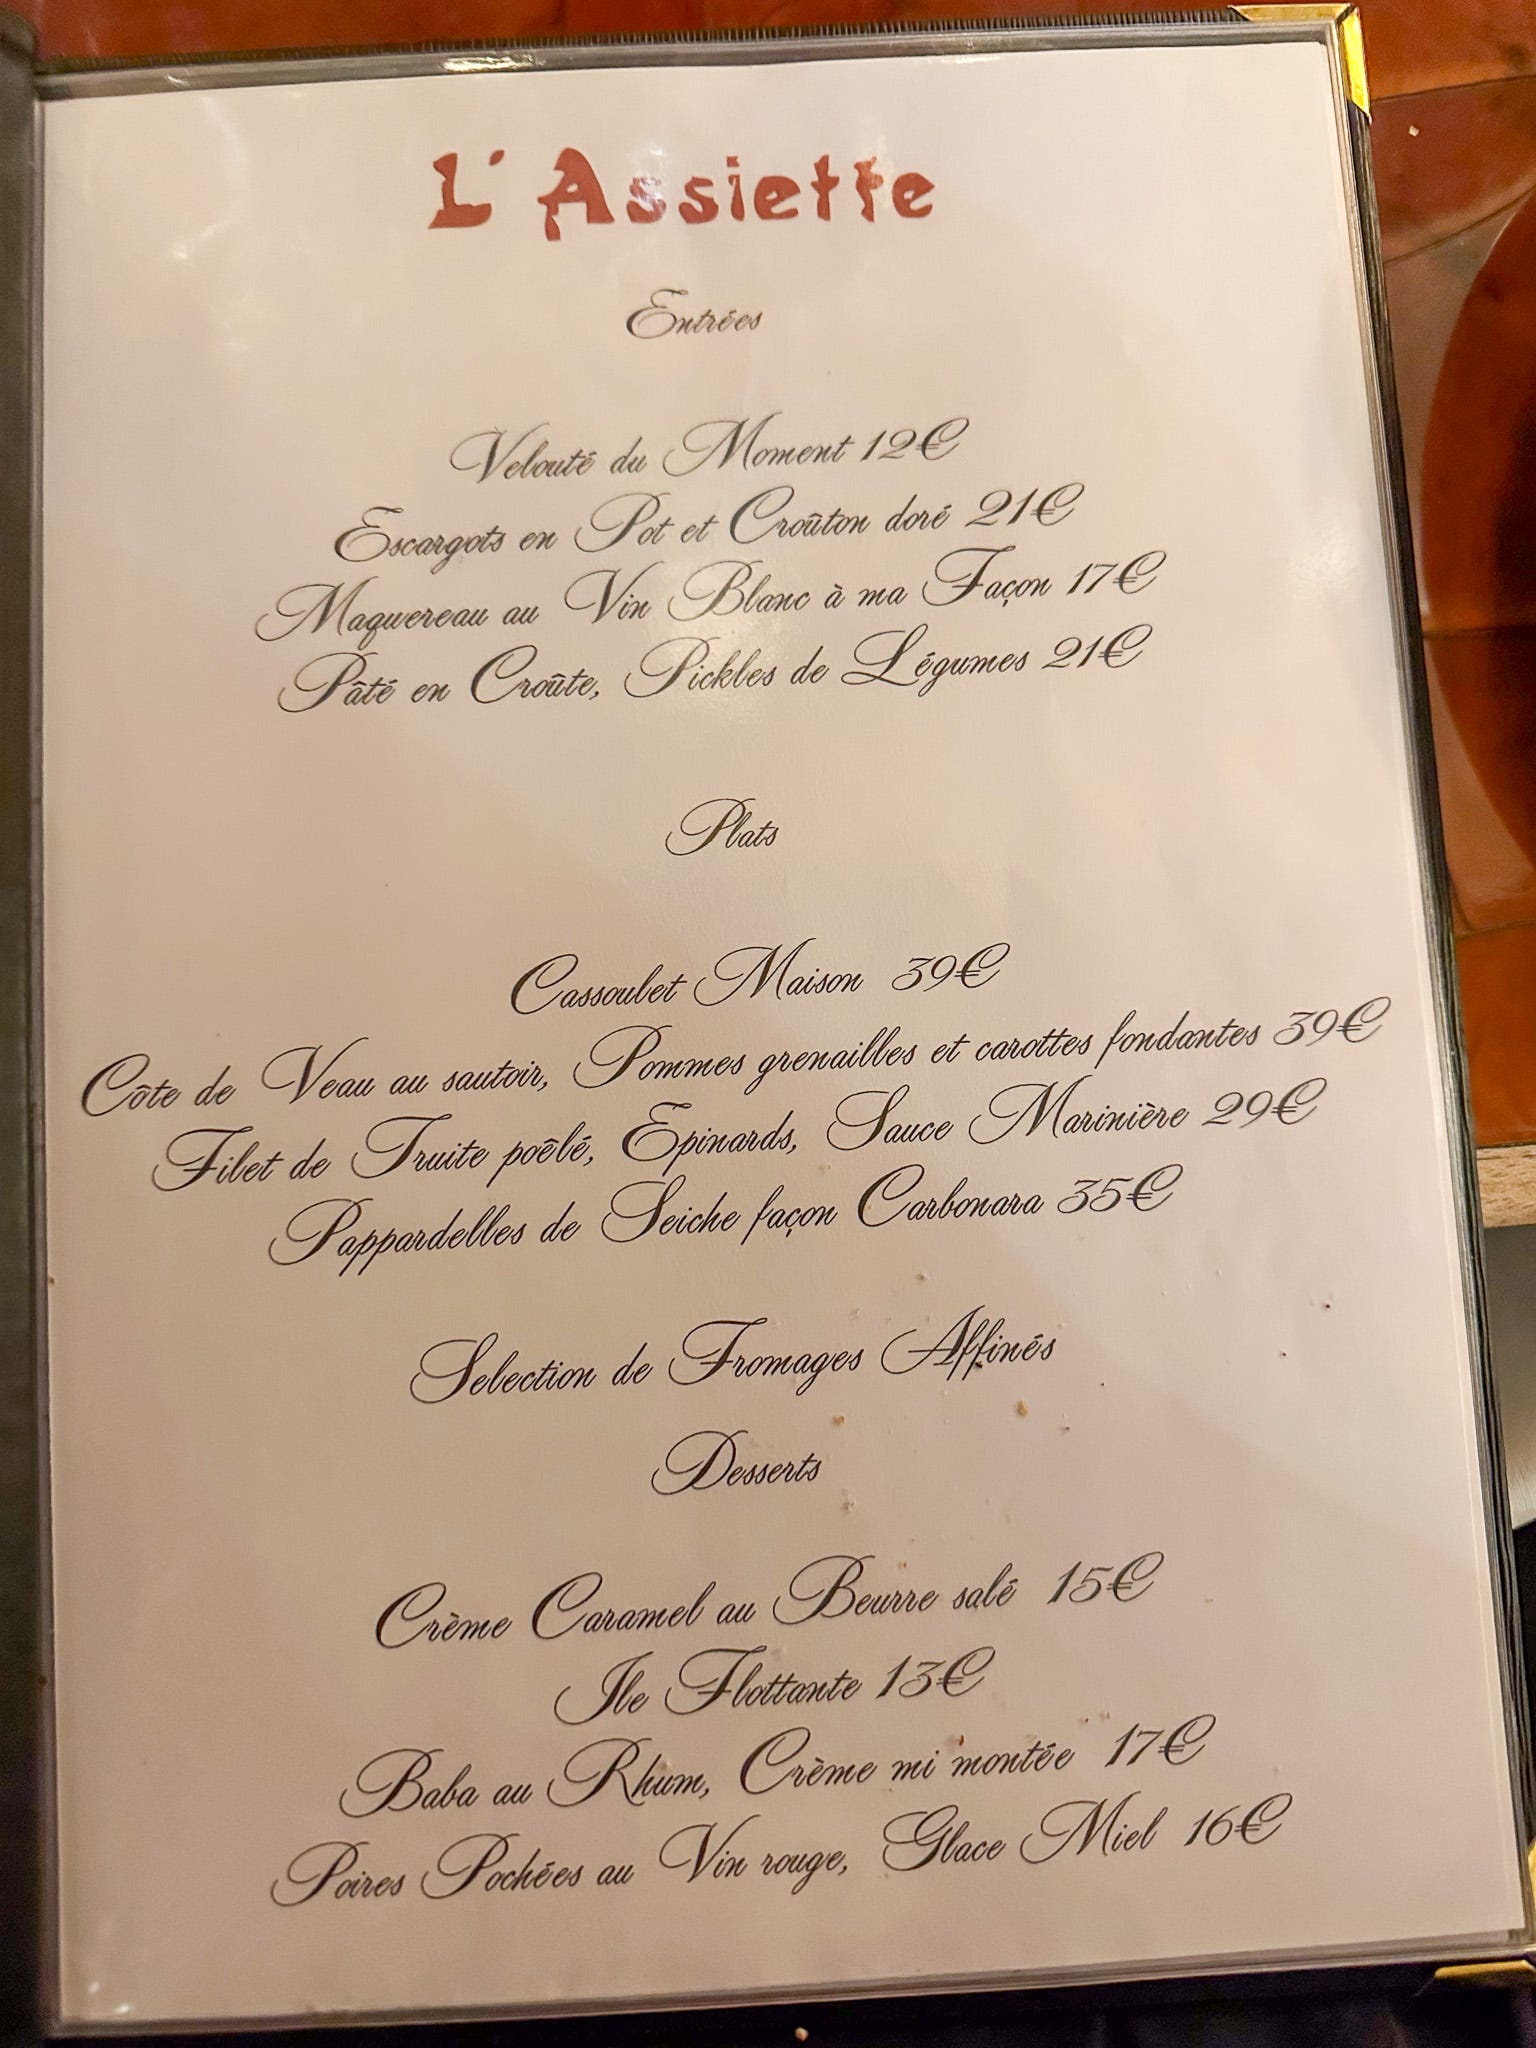 L'Assiette
Entrées
Velouté du Moment 12€
Escargots en Pot et Croûton doré 21€
Maquereau au Vin Blanc à ma Façon 17€
Pâté en Croûte, Pickles de Légumes 21€
Plats
Cassoulet Maison 39€
Côte de Veau au sautoir, Pommes grenailles et carottes fondantes 39€
Filet de Truite poêlé, Epinards, Sauce Marinière 29€
Pappardelles de Seiche façon Carbonara 35€
Selection de Fromages Affinés
Desserts
Crème Caramel au Beurre salé 15€
Ile Flottante 13€
Baba au Rhum, Crème mi montée 17€
Poires Pochées au Vin rouge, Glace Miel 16€